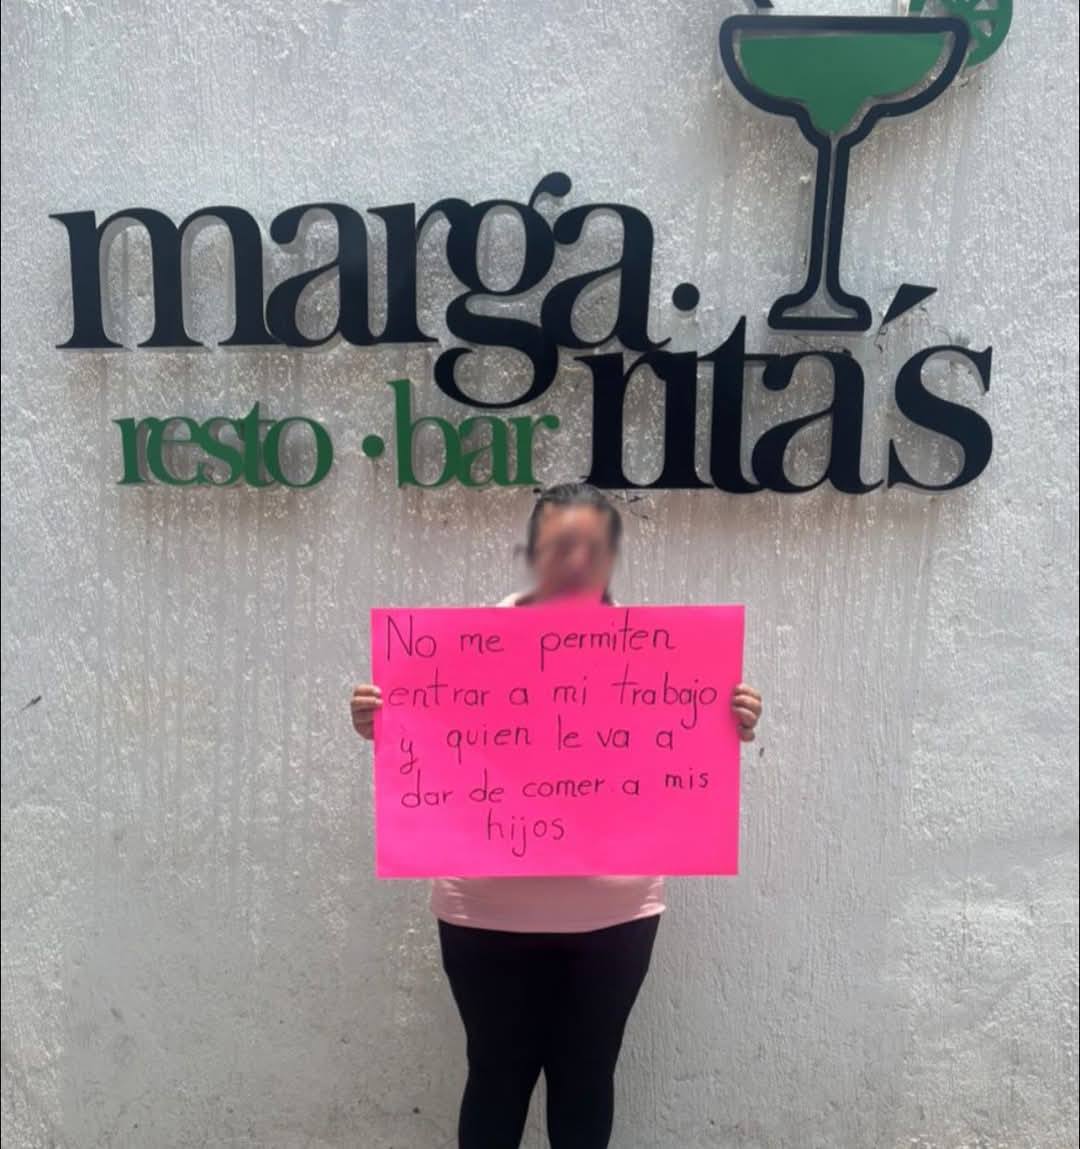 marga.
rita's
resto·bar
No me permiten
entrar a mi trabajo
y quien le va a
dar de comer a mis
hijos